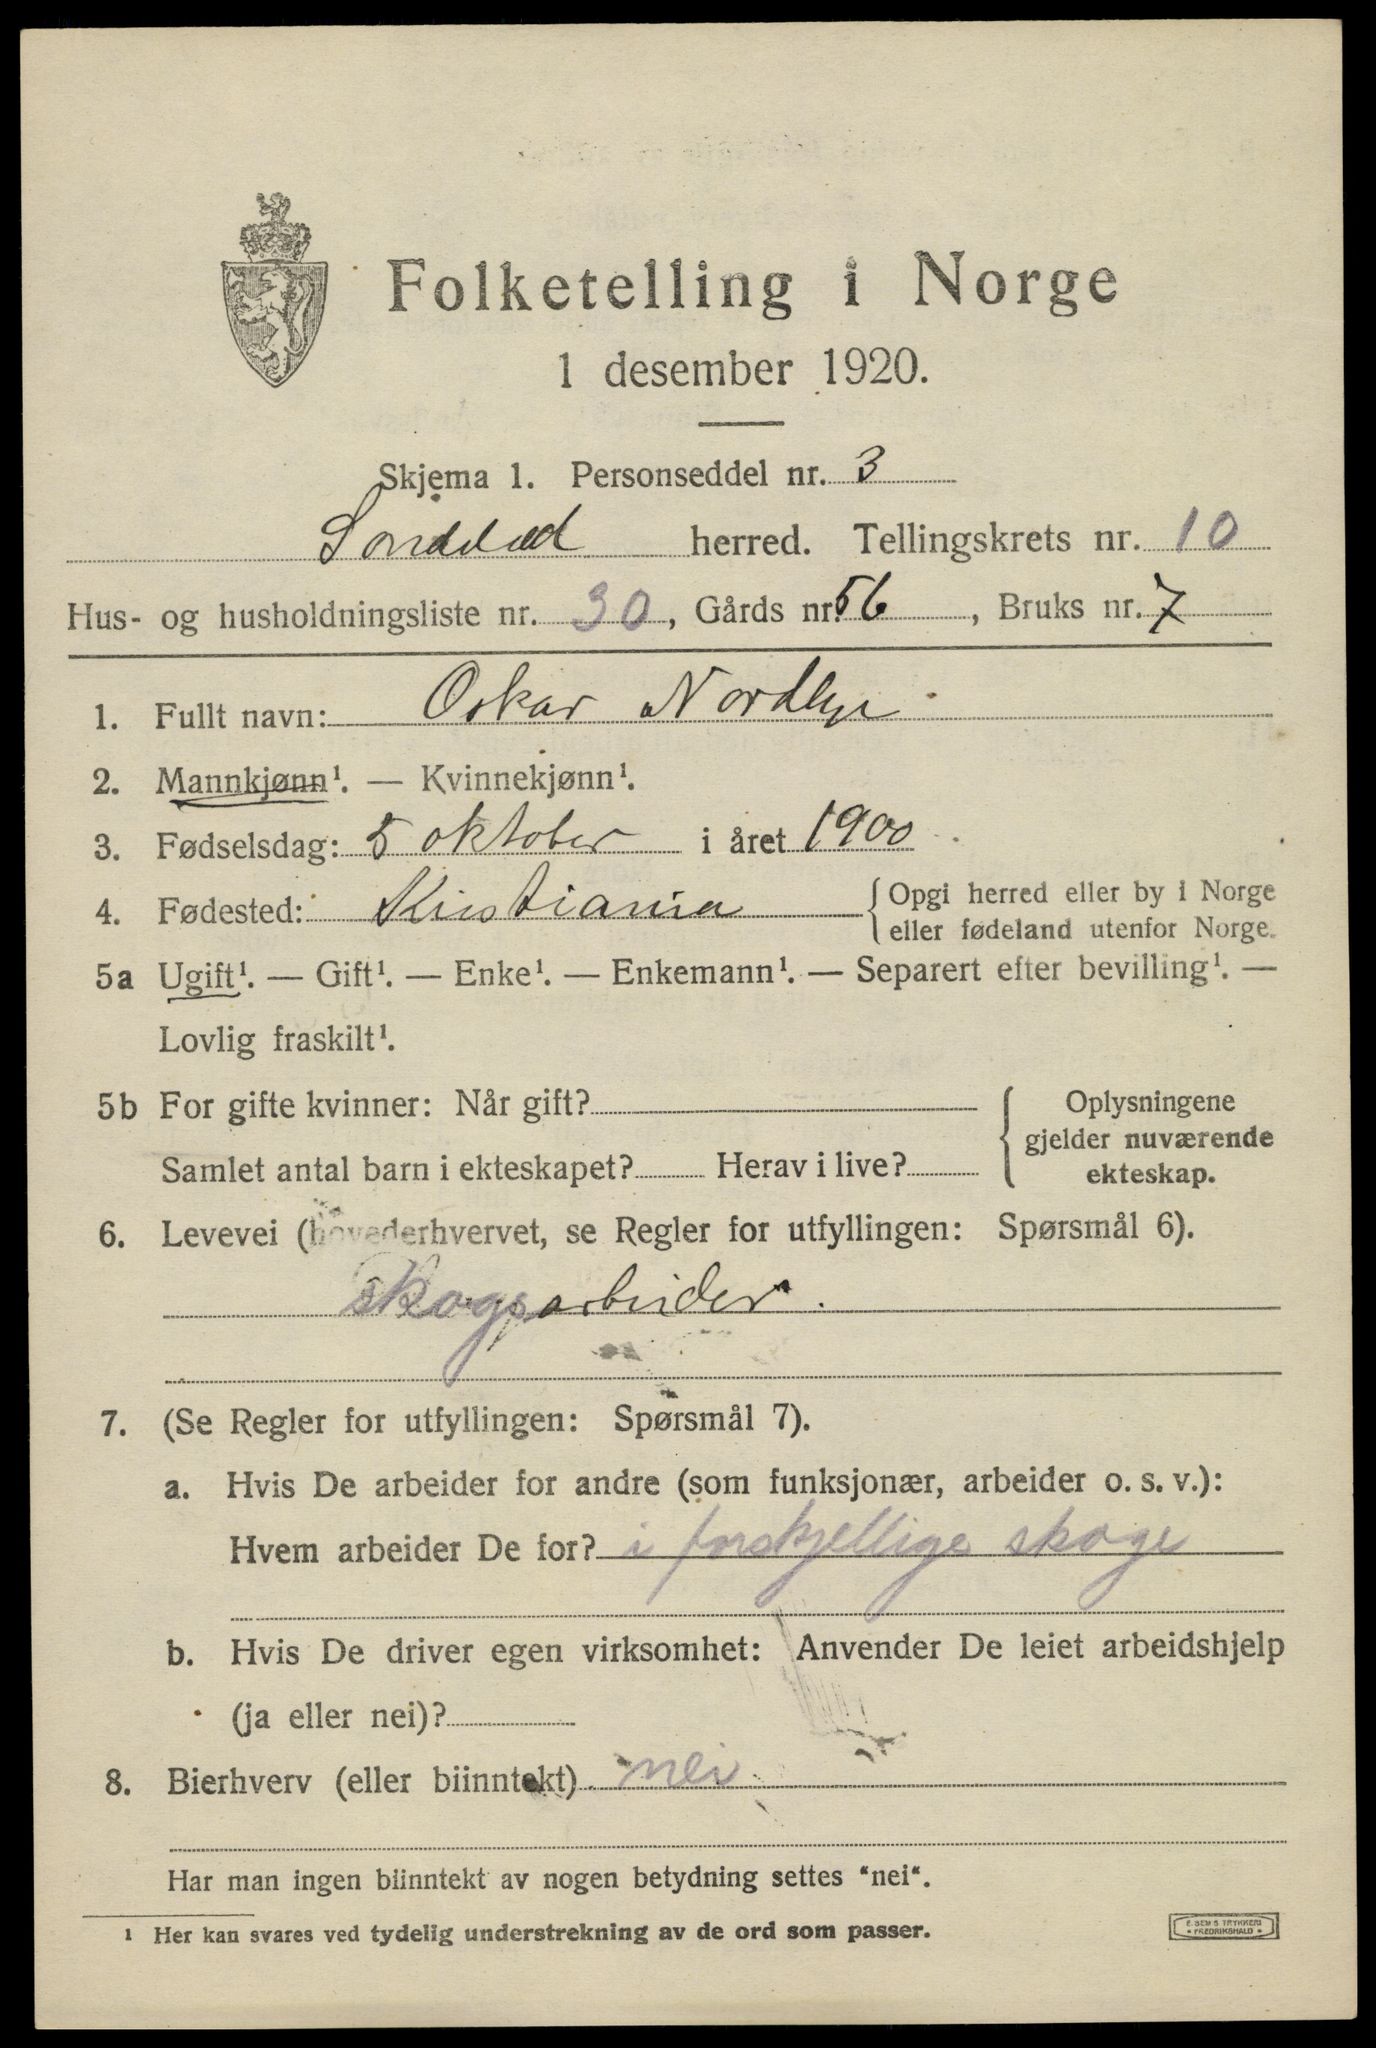 Folketelling i Norge
1 desember 1920.
Skjema 1. Personseddel nr. 3
Sønddeled herred. Tellingskrets nr. 10
Hus- og husholdningsliste nr. 30, Gårds nr. 56, Bruks nr. 7
1. Fullt navn: Oskar Nordbye
2. Mannkjønn¹. — Kvinnekjønn¹.
3. Fødselsdag: 5 oktober i året 1900
4. Fødested: Kristiania {Opgi herred eller by i Norge
eller fødeland utenfor Norge.
5a Ugift¹. — Gift¹. — Enke¹. — Enkemann¹. — Separert efter bevilling¹. —
Lovlig fraskilt¹.
5b For gifte kvinner: Når gift? { Oplysningene
gjelder nuværende
Samlet antal barn i ekteskapet? Herav i live? ekteskap.
6. Levevei (hovederhvervet, se Regler for utfyllingen: Spørsmål 6).
Skogsarbeider.
7. (Se Regler for utfyllingen: Spørsmål 7).
a. Hvis De arbeider for andre (som funksjonær, arbeider o. s. v.):
Hvem arbeider De for? i forskjellige skoge
b. Hvis De driver egen virksomhet: Anvender De leiet arbeidshjelp
(ja eller nei)?
8. Bierhverv (eller biinntekt) nei
Har man ingen biinntekt av nogen betydning settes "nei".
¹ Her kan svares ved tydelig understrekning av de ord som passer.
E. SEM'S TRYKKERI
• FREDRIKSHALD •